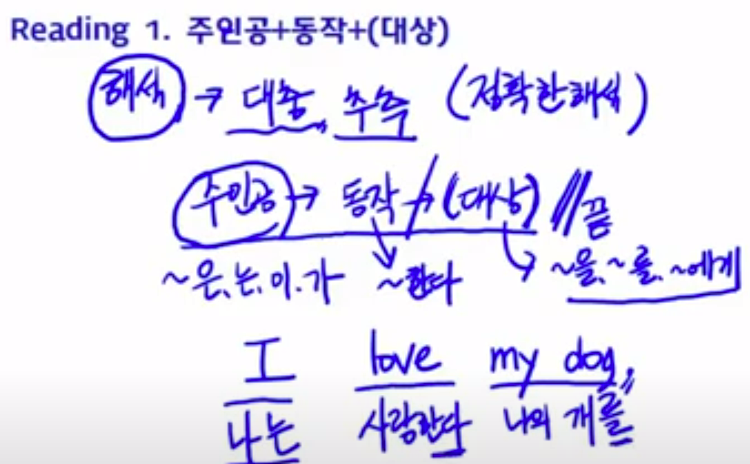 Reading 1. 주인공+동작+(대상)
해석 → 대충, 추측 (정확한 해석)
주인공 → 동작 → (대상) // 끝
~은,는,이,가 ~한다 ~을,~를,~에게
I love my dog.
나는 사랑한다 나의 개를